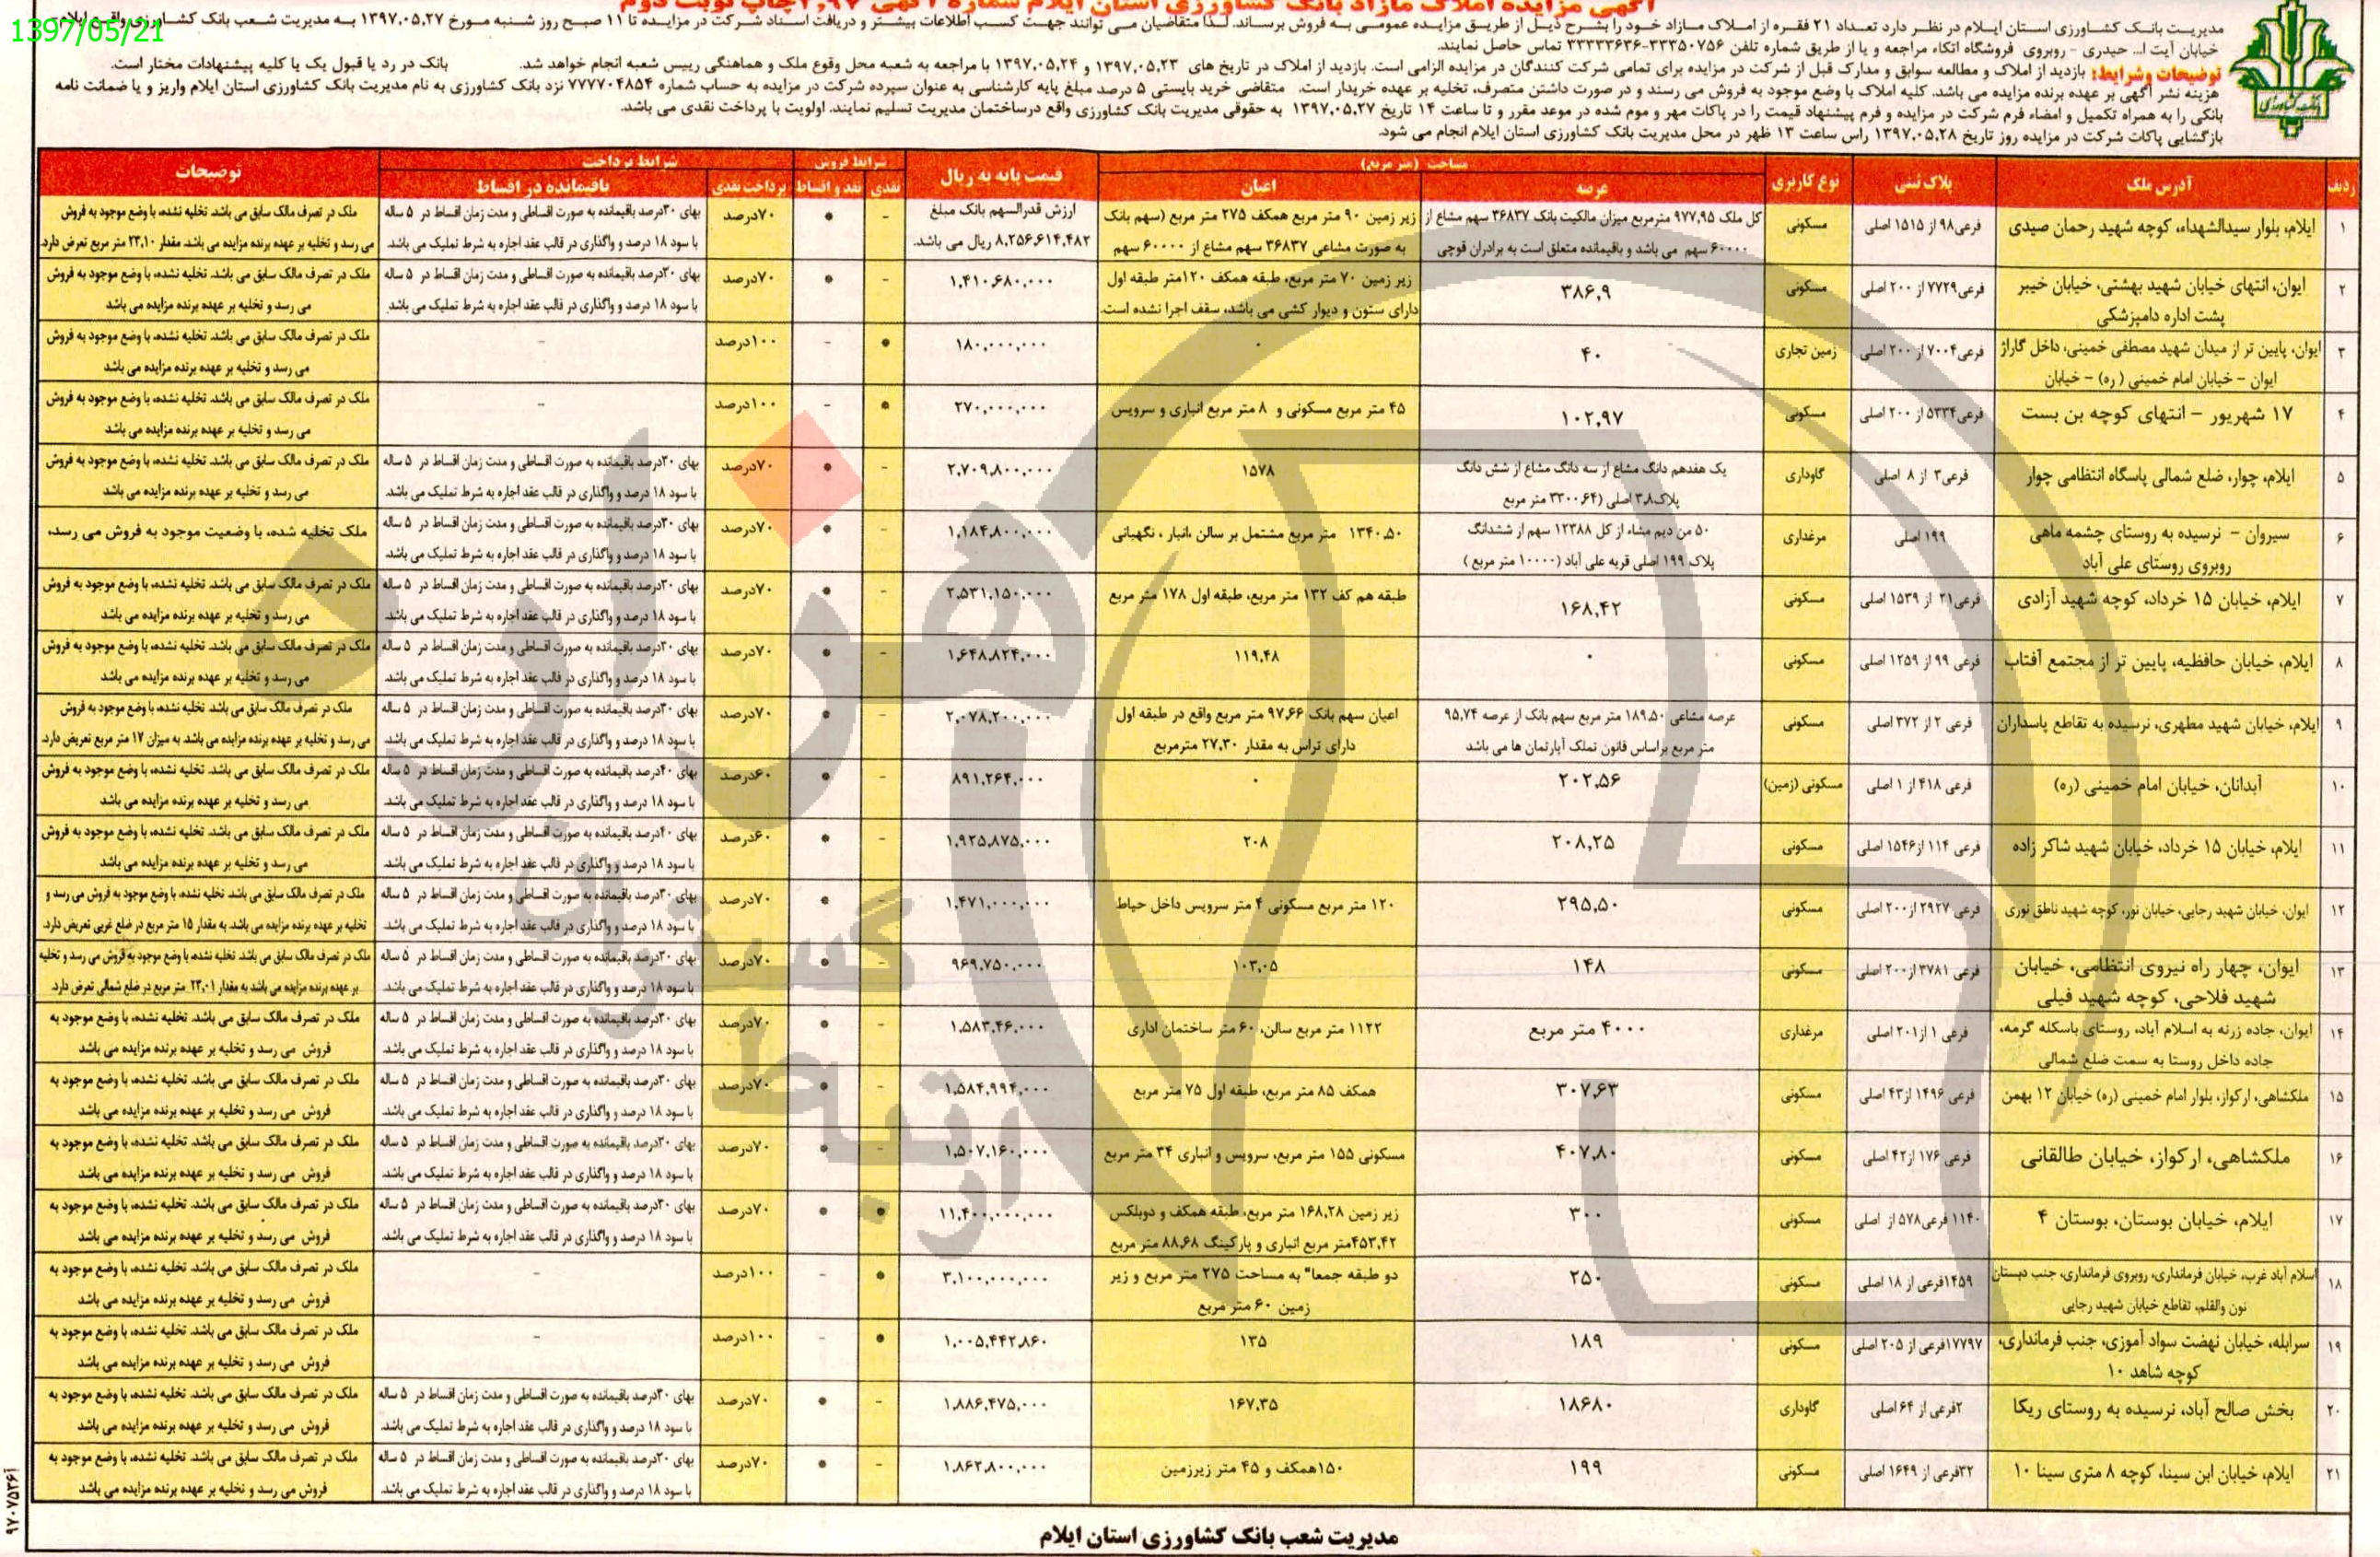 1397/05/21
آگهی مزایده املاک مازاد بانک کشاورزی استان ایلام شماره آگهی ۲٫۹۷ چاپ نوبت دوم
مدیریت بانک کشاورزی استان ایلام در نظر دارد تعداد ۲۱ فقره از املاک مازاد خود را بشرح ذیل از طریق مزایده عمومی به فروش برساند. لذا متقاضیان می توانند جهت کسب اطلاعات بیشتر و دریافت اسناد شرکت در مزایده تا ۱۱ صبح روز شنبه مورخ ۱۳۹۷٫۰۵٫۲۷ به مدیریت شعب بانک کشاورزی واقع در ایلام
خیابان آیت ا... حیدری - روبروی فروشگاه اتکاء مراجعه و یا از طریق شماره تلفن ۳۳۳۵۰۷۵۶-۳۳۳۳۳۶۳۶ تماس حاصل نمایند.
توضیحات وشرایط: بازدید از املاک و مطالعه سوابق و مدارک قبل از شرکت در مزایده برای تمامی شرکت کنندگان در مزایده الزامی است. بازدید از املاک در تاریخ های ۱۳۹۷٫۰۵٫۲۳ و ۱۳۹۷٫۰۵٫۲۴ با مراجعه به شعبه محل وقوع ملک و هماهنگی رییس شعبه انجام خواهد شد. بانک در رد یا قبول یک یا کلیه پیشنهادات مختار است.
هزینه نشر آگهی بر عهده برنده مزایده می باشد. کلیه املاک با وضع موجود به فروش می رسند و در صورت داشتن متصرف، تخلیه بر عهده خریدار است. متقاضی خرید بایستی ۵ درصد مبلغ پایه کارشناسی به عنوان سپرده شرکت در مزایده به حساب شماره ۷۷۷۷۰۴۸۵۴ نزد بانک کشاورزی به نام مدیریت بانک کشاورزی استان ایلام واریز و یا ضمانت نامه
بانکی را به همراه تکمیل و امضاء فرم شرکت در مزایده و فرم پیشنهاد قیمت را در پاکات مهر و موم شده در موعد مقرر و تا ساعت ۱۴ تاریخ ۱۳۹۷٫۰۵٫۲۷ به حقوقی مدیریت بانک کشاورزی واقع درساختمان مدیریت تسلیم نمایند. اولویت با پرداخت نقدی می باشد.
بازگشایی پاکات شرکت در مزایده روز تاریخ ۱۳۹۷٫۰۵٫۲۸ راس ساعت ۱۳ ظهر در محل مدیریت بانک کشاورزی استان ایلام انجام می شود.
بانک کشاورزی
ردیف آدرس ملک پلاک ثبتی نوع کاربری مساحت (متر مربع) عرصه اعیان قیمت پایه به ریال شرایط فروش نقدی نقد و اقساط شرایط پرداخت پرداخت نقدی باقیمانده در اقساط توضیحات
۱ ایلام، بلوار سیدالشهداء، کوچه شهید رحمان صیدی فرعی۹۸ از ۱۵۱۵ اصلی مسکونی کل ملک ۹۷۷٫۹۵ مترمربع میزان مالکیت بانک ۳۶۸۳۷ سهم مشاع از ۶۰۰۰۰ سهم می باشد و باقیمانده متعلق است به برادران قوچی زیر زمین ۹۰ متر مربع همکف ۲۷۵ متر مربع (سهم بانک به صورت مشاعی ۳۶۸۳۷ سهم مشاع از ۶۰۰۰۰ سهم ارزش قدرالسهم بانک مبلغ ۸٫۲۵۶٫۶۱۴٫۴۸۲ ریال می باشد. - • ۷۰درصد بهای ۳۰درصد باقیمانده به صورت اقساطی و مدت زمان اقساط در ۵ ساله با سود ۱۸ درصد و واگذاری در قالب عقد اجاره به شرط تملیک می باشد. ملک در تصرف مالک سابق می باشد. تخلیه نشده، با وضع موجود به فروش می رسد و تخلیه بر عهده برنده مزایده می باشد. مقدار ۲۳٫۱۰ متر مربع تعرض دارد.
۲ ایوان، انتهای خیابان شهید بهشتی، خیابان خیبر پشت اداره دامپزشکی فرعی۷۷۲۹ از ۲۰۰ اصلی مسکونی ۳۸۶٫۹ زیر زمین ۷۰ متر مربع، طبقه همکف ۱۲۰متر طبقه اول دارای ستون و دیوار کشی می باشد، سقف اجرا نشده است. ۱٫۴۱۰٫۶۸۰٫۰۰۰ - • ۷۰درصد بهای ۳۰درصد باقیمانده به صورت اقساطی و مدت زمان اقساط در ۵ ساله با سود ۱۸ درصد و واگذاری در قالب عقد اجاره به شرط تملیک می باشد. ملک در تصرف مالک سابق می باشد. تخلیه نشده، با وضع موجود به فروش می رسد و تخلیه بر عهده برنده مزایده می باشد
۳ ایوان، پایین تر از میدان شهید مصطفی خمینی، داخل گاراژ ایوان - خیابان امام خمینی (ره) - خیابان فرعی۷۰۰۴ از ۲۰۰ اصلی زمین تجاری ۴۰ ۰ ۱۸۰٫۰۰۰٫۰۰۰ • - ۱۰۰درصد - ملک در تصرف مالک سابق می باشد. تخلیه نشده، با وضع موجود به فروش می رسد و تخلیه بر عهده برنده مزایده می باشد
۴ ۱۷ شهریور - انتهای کوچه بن بست فرعی۵۳۳۴ از ۲۰۰ اصلی مسکونی ۱۰۲٫۹۷ ۴۵ متر مربع مسکونی و ۸ متر مربع انباری و سرویس ۲۷۰٫۰۰۰٫۰۰۰ • - ۱۰۰درصد - ملک در تصرف مالک سابق می باشد. تخلیه نشده، با وضع موجود به فروش می رسد و تخلیه بر عهده برنده مزایده می باشد
۵ ایلام، چوار، ضلع شمالی پاسگاه انتظامی چوار فرعی۳ از ۸ اصلی گاوداری یک هفدهم دانگ مشاع از سه دانگ مشاع از شش دانگ پلاک۳٫۸ اصلی (۳۳۰۰٫۶۴ متر مربع ۱۵۷۸ ۲٫۷۰۹٫۸۰۰٫۰۰۰ - • ۷۰درصد بهای ۳۰درصد باقیمانده به صورت اقساطی و مدت زمان اقساط در ۵ ساله با سود ۱۸ درصد و واگذاری در قالب عقد اجاره به شرط تملیک می باشد. ملک در تصرف مالک سابق می باشد. تخلیه نشده، با وضع موجود به فروش می رسد و تخلیه بر عهده برنده مزایده می باشد
۶ سیروان - نرسیده به روستای چشمه ماهی روبروی روستای علی آباد ۱۹۹ اصلی مرغداری ۵۰ من دیم مشاء از کل ۱۲۳۸۸ سهم از ششدانگ پلاک ۱۹۹ اصلی قریه علی آباد (۱۰۰۰۰ متر مربع ) ۱۳۴۰٫۵۰ متر مربع مشتمل بر سالن ،انبار ، نگهبانی ۱٫۱۸۴٫۸۰۰٫۰۰۰ - • ۷۰درصد بهای ۳۰درصد باقیمانده به صورت اقساطی و مدت زمان اقساط در ۵ ساله با سود ۱۸ درصد و واگذاری در قالب عقد اجاره به شرط تملیک می باشد. ملک تخلیه شده، با وضعیت موجود به فروش می رسد.
۷ ایلام، خیابان ۱۵ خرداد، کوچه شهید آزادی فرعی۲۱ از ۱۵۳۹ اصلی مسکونی ۱۶۸٫۴۲ طبقه هم کف ۱۳۲ متر مربع، طبقه اول ۱۷۸ متر مربع ۲٫۵۳۱٫۱۵۰٫۰۰۰ - • ۷۰درصد بهای ۳۰درصد باقیمانده به صورت اقساطی و مدت زمان اقساط در ۵ ساله با سود ۱۸ درصد و واگذاری در قالب عقد اجاره به شرط تملیک می باشد. ملک در تصرف مالک سابق می باشد. تخلیه نشده، با وضع موجود به فروش می رسد و تخلیه بر عهده برنده مزایده می باشد
۸ ایلام، خیابان حافظیه، پایین تر از مجتمع آفتاب فرعی ۹۹ از ۱۲۵۹ اصلی مسکونی ۰ ۱۱۹٫۴۸ ۱٫۶۴۸٫۸۲۴٫۰۰۰ - • ۷۰درصد بهای ۳۰درصد باقیمانده به صورت اقساطی و مدت زمان اقساط در ۵ ساله با سود ۱۸ درصد و واگذاری در قالب عقد اجاره به شرط تملیک می باشد. ملک در تصرف مالک سابق می باشد. تخلیه نشده، با وضع موجود به فروش می رسد و تخلیه بر عهده برنده مزایده می باشد
۹ ایلام، خیابان شهید مطهری، نرسیده به تقاطع پاسداران فرعی ۲ از ۳۷۲ اصلی مسکونی عرصه مشاعی ۱۸۹٫۵۰ متر مربع سهم بانک از عرصه ۹۵٫۷۴ متر مربع براساس قانون تملک آپارتمان ها می باشد اعیان سهم بانک ۹۷٫۶۶ متر مربع واقع در طبقه اول دارای تراس به مقدار ۲۷٫۳۰ مترمربع ۲٫۰۷۸٫۲۰۰٫۰۰۰ - • ۷۰درصد بهای ۳۰درصد باقیمانده به صورت اقساطی و مدت زمان اقساط در ۵ ساله با سود ۱۸ درصد و واگذاری در قالب عقد اجاره به شرط تملیک می باشد. ملک در تصرف مالک سابق می باشد. تخلیه نشده، با وضع موجود به فروش می رسد و تخلیه بر عهده برنده مزایده می باشد. به میزان ۱۷ متر مربع تعریض دارد.
۱۰ آبدانان، خیابان امام خمینی (ره) فرعی ۴۱۸ از ۱ اصلی مسکونی (زمین) ۲۰۲٫۵۶ ۰ ۸۹۱٫۲۶۴٫۰۰۰ - • ۶۰درصد بهای ۴۰درصد باقیمانده به صورت اقساطی و مدت زمان اقساط در ۵ ساله با سود ۱۸ درصد و واگذاری در قالب عقد اجاره به شرط تملیک می باشد. ملک در تصرف مالک سابق می باشد. تخلیه نشده، با وضع موجود به فروش می رسد و تخلیه بر عهده برنده مزایده می باشد
۱۱ ایلام، خیابان ۱۵ خرداد، خیابان شهید شاکر زاده فرعی ۱۱۴ از۱۵۴۶ اصلی مسکونی ۲۰۸٫۲۵ ۲۰۸ ۱٫۹۲۵٫۸۷۵٫۰۰۰ - • ۶۰درصد بهای ۴۰درصد باقیمانده به صورت اقساطی و مدت زمان اقساط در ۵ ساله با سود ۱۸ درصد و واگذاری در قالب عقد اجاره به شرط تملیک می باشد. ملک در تصرف مالک سابق می باشد. تخلیه نشده، با وضع موجود به فروش می رسد و تخلیه بر عهده برنده مزایده می باشد
۱۲ ایوان، خیابان شهید رجایی، خیابان نور، کوچه شهید ناطق نوری فرعی ۲۹۲۷ از۲۰۰ اصلی مسکونی ۲۹۵٫۵۰ ۱۲۰ متر مربع مسکونی ۴ متر سرویس داخل حیاط ۱٫۴۷۱٫۰۰۰٫۰۰۰ - • ۷۰درصد بهای ۳۰درصد باقیمانده به صورت اقساطی و مدت زمان اقساط در ۵ ساله با سود ۱۸ درصد و واگذاری در قالب عقد اجاره به شرط تملیک می باشد. ملک در تصرف مالک سابق می باشد. تخلیه نشده، با وضع موجود به فروش می رسد و تخلیه بر عهده برنده مزایده می باشد. به مقدار ۱۵ متر مربع در ضلع غربی تعریض دارد.
۱۳ ایوان، چهار راه نیروی انتظامی، خیابان شهید فلاحی، کوچه شهید فیلی فرعی ۳۷۸۱ از۲۰۰ اصلی مسکونی ۱۴۸ ۱۰۳٫۰۵ ۹۶۹٫۷۵۰٫۰۰۰ - • ۷۰درصد بهای ۳۰درصد باقیمانده به صورت اقساطی و مدت زمان اقساط در ۵ ساله با سود ۱۸ درصد و واگذاری در قالب عقد اجاره به شرط تملیک می باشد. ملک در تصرف مالک سابق می باشد. تخلیه نشده، با وضع موجود به فروش می رسد و تخلیه بر عهده برنده مزایده می باشد به مقدار ۲۳٫۰۱ متر مربع در ضلع شمالی تعرض دارد.
۱۴ ایوان، جاده زرنه به اسلام آباد، روستای باسکله گرمه، جاده داخل روستا به سمت ضلع شمالی فرعی ۱ از۲۰۱ اصلی مرغداری ۴۰۰۰ متر مربع ۱۱۲۲ متر مربع سالن، ۶۰ متر ساختمان اداری ۱٫۵۸۳٫۴۶۰٫۰۰۰ - • ۷۰درصد بهای ۳۰درصد باقیمانده به صورت اقساطی و مدت زمان اقساط در ۵ ساله با سود ۱۸ درصد و واگذاری در قالب عقد اجاره به شرط تملیک می باشد. ملک در تصرف مالک سابق می باشد. تخلیه نشده، با وضع موجود به فروش می رسد و تخلیه بر عهده برنده مزایده می باشد
۱۵ ملکشاهی، ارکواز، بلوار امام خمینی (ره) خیابان ۱۲ بهمن فرعی ۱۴۹۶ از۴۳ اصلی مسکونی ۳۰۷٫۶۳ همکف ۸۵ متر مربع، طبقه اول ۷۵ متر مربع ۱٫۵۸۴٫۹۹۴٫۰۰۰ - • ۷۰درصد بهای ۳۰درصد باقیمانده به صورت اقساطی و مدت زمان اقساط در ۵ ساله با سود ۱۸ درصد و واگذاری در قالب عقد اجاره به شرط تملیک می باشد. ملک در تصرف مالک سابق می باشد. تخلیه نشده، با وضع موجود به فروش می رسد و تخلیه بر عهده برنده مزایده می باشد
۱۶ ملکشاهی، ارکواز، خیابان طالقانی فرعی ۱۷۶ از۴۲ اصلی مسکونی ۴۰۷٫۸۰ مسکونی ۱۵۵ متر مربع، سرویس و انباری ۳۴ متر مربع ۱٫۵۰۷٫۱۶۰٫۰۰۰ - • ۷۰درصد بهای ۳۰درصد باقیمانده به صورت اقساطی و مدت زمان اقساط در ۵ ساله با سود ۱۸ درصد و واگذاری در قالب عقد اجاره به شرط تملیک می باشد. ملک در تصرف مالک سابق می باشد. تخلیه نشده، با وضع موجود به فروش می رسد و تخلیه بر عهده برنده مزایده می باشد
۱۷ ایلام، خیابان بوستان، بوستان ۴ ۱۱۴۰ فرعی۵۷۸ از اصلی مسکونی ۳۰۰ زیر زمین ۱۶۸٫۲۸ متر مربع، طبقه همکف و دوبلکس ۴۵۳٫۴۲متر مربع انباری و پارکینگ ۸۸٫۶۸ متر مربع ۱۱٫۴۰۰٫۰۰۰٫۰۰۰ • • ۷۰درصد بهای ۳۰درصد باقیمانده به صورت اقساطی و مدت زمان اقساط در ۵ ساله با سود ۱۸ درصد و واگذاری در قالب عقد اجاره به شرط تملیک می باشد. ملک در تصرف مالک سابق می باشد. تخلیه نشده، با وضع موجود به فروش می رسد و تخلیه بر عهده برنده مزایده می باشد
۱۸ اسلام آباد غرب، خیابان فرمانداری، روبروی فرمانداری، جنب دبستان نون والقلم، تقاطع خیابان شهید رجایی ۱۴۵۹فرعی از ۱۸ اصلی مسکونی ۲۵۰ دو طبقه جمعا" به مساحت ۲۷۵ متر مربع و زیر زمین ۶۰ متر مربع ۳٫۱۰۰٫۰۰۰٫۰۰۰ • - ۱۰۰درصد - ملک در تصرف مالک سابق می باشد. تخلیه نشده، با وضع موجود به فروش می رسد و تخلیه بر عهده برنده مزایده می باشد
۱۹ سرابله، خیابان نهضت سواد آموزی، جنب فرمانداری، کوچه شاهد ۱۰ ۱۷۷۹۷فرعی از ۲۰۵ اصلی مسکونی ۱۸۹ ۱۳۵ ۱٫۰۰۵٫۴۴۲٫۸۶۰ • - ۱۰۰درصد - ملک در تصرف مالک سابق می باشد. تخلیه نشده، با وضع موجود به فروش می رسد و تخلیه بر عهده برنده مزایده می باشد
۲۰ بخش صالح آباد، نرسیده به روستای ریکا ۲فرعی از ۶۴ اصلی گاوداری ۱۸۶۸۰ ۱۶۷٫۳۵ ۱٫۸۸۶٫۴۷۵٫۰۰۰ - • ۷۰درصد بهای ۳۰درصد باقیمانده به صورت اقساطی و مدت زمان اقساط در ۵ ساله با سود ۱۸ درصد و واگذاری در قالب عقد اجاره به شرط تملیک می باشد. ملک در تصرف مالک سابق می باشد. تخلیه نشده، با وضع موجود به فروش می رسد و تخلیه بر عهده برنده مزایده می باشد
۲۱ ایلام، خیابان ابن سینا، کوچه ۸ متری سینا ۱۰ ۳۲فرعی از ۱۶۴۹ اصلی مسکونی ۱۹۹ ۱۵۰همکف و ۴۵ متر زیرزمین ۱٫۸۶۲٫۸۰۰٫۰۰۰ - • ۷۰درصد بهای ۳۰درصد باقیمانده به صورت اقساطی و مدت زمان اقساط در ۵ ساله با سود ۱۸ درصد و واگذاری در قالب عقد اجاره به شرط تملیک می باشد. ملک در تصرف مالک سابق می باشد. تخلیه نشده، با وضع موجود به فروش می رسد و تخلیه بر عهده برنده مزایده می باشد
مدیریت شعب بانک کشاورزی استان ایلام
۹۷۰۷۵۳۶آ